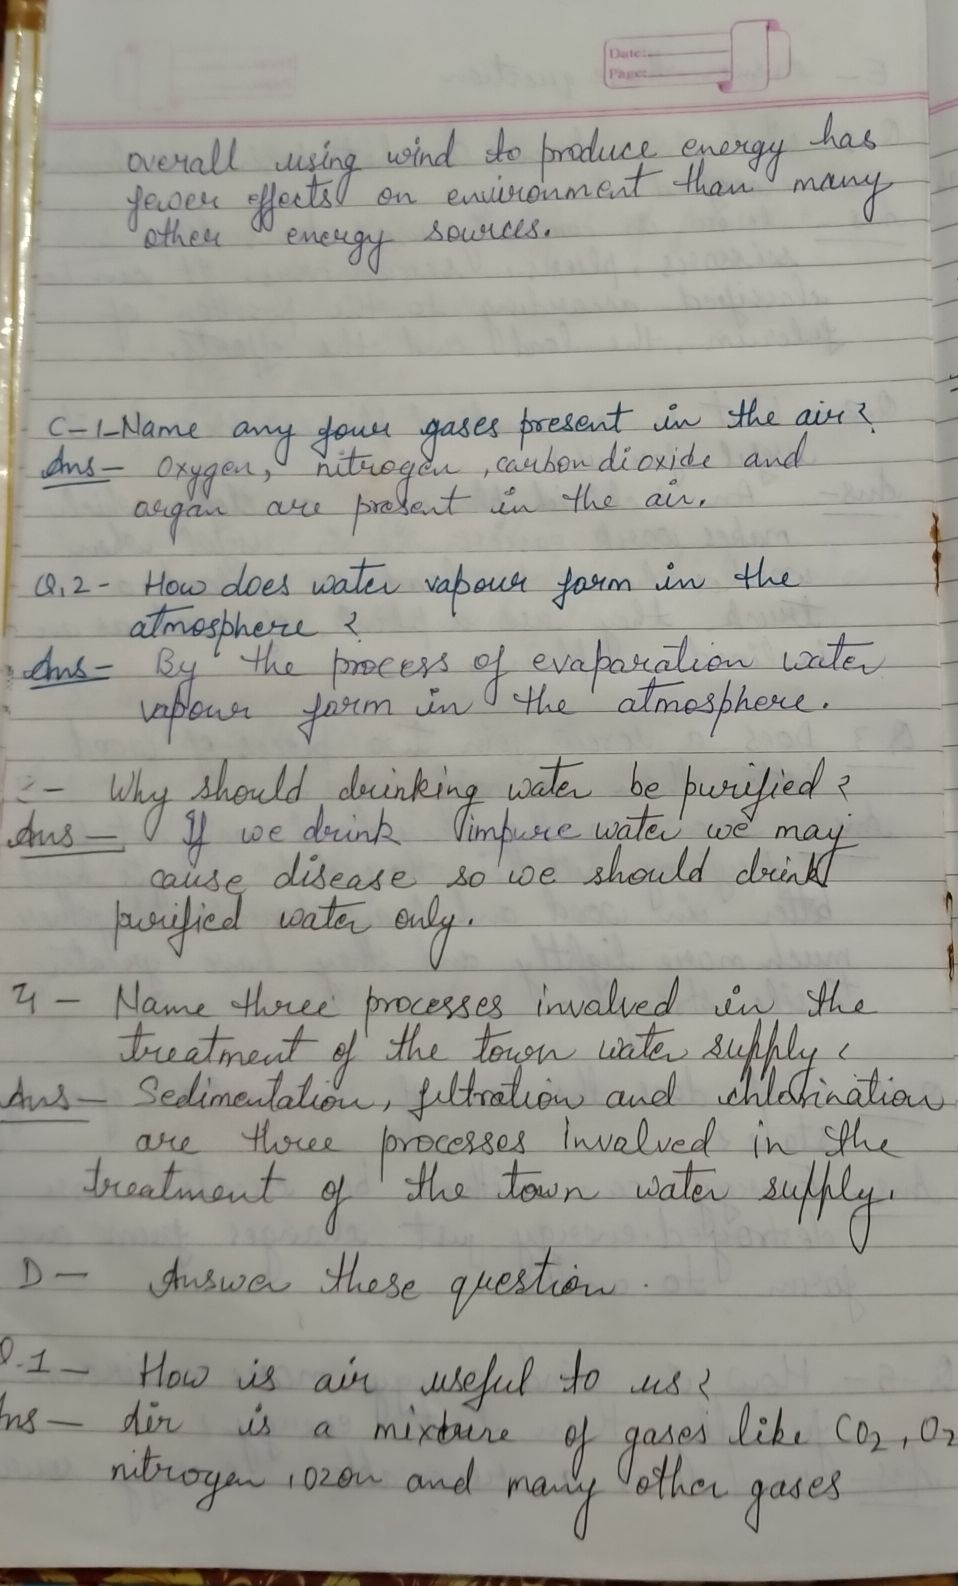 Date:
Page:
overall using wind to produce energy has
fewer effects on environment than many
other energy sources.
C-1-Name any four gases present in the air?
Ans- Oxygen, nitrogen, carbon dioxide and
argan are present in the air.
Q.2- How does water vapour form in the
atmosphere ?
Ans- By the process of evaparation water
vapour form in the atmosphere.
- Why should drinking water be purified?
Ans- If we drink impure water we may
cause disease so we should drink
purified water only.
4- Name three processes involved in the
treatment of the town water supply?
Ans- Sedimentation, filtration and chlorination
are three processes involved in the
treatment of the town water supply.
D- Answer these question.
Q.1- How is air useful to us?
Ans- Air is a mixture of gases like CO2, O2
nitrogen, ozon and many other gases